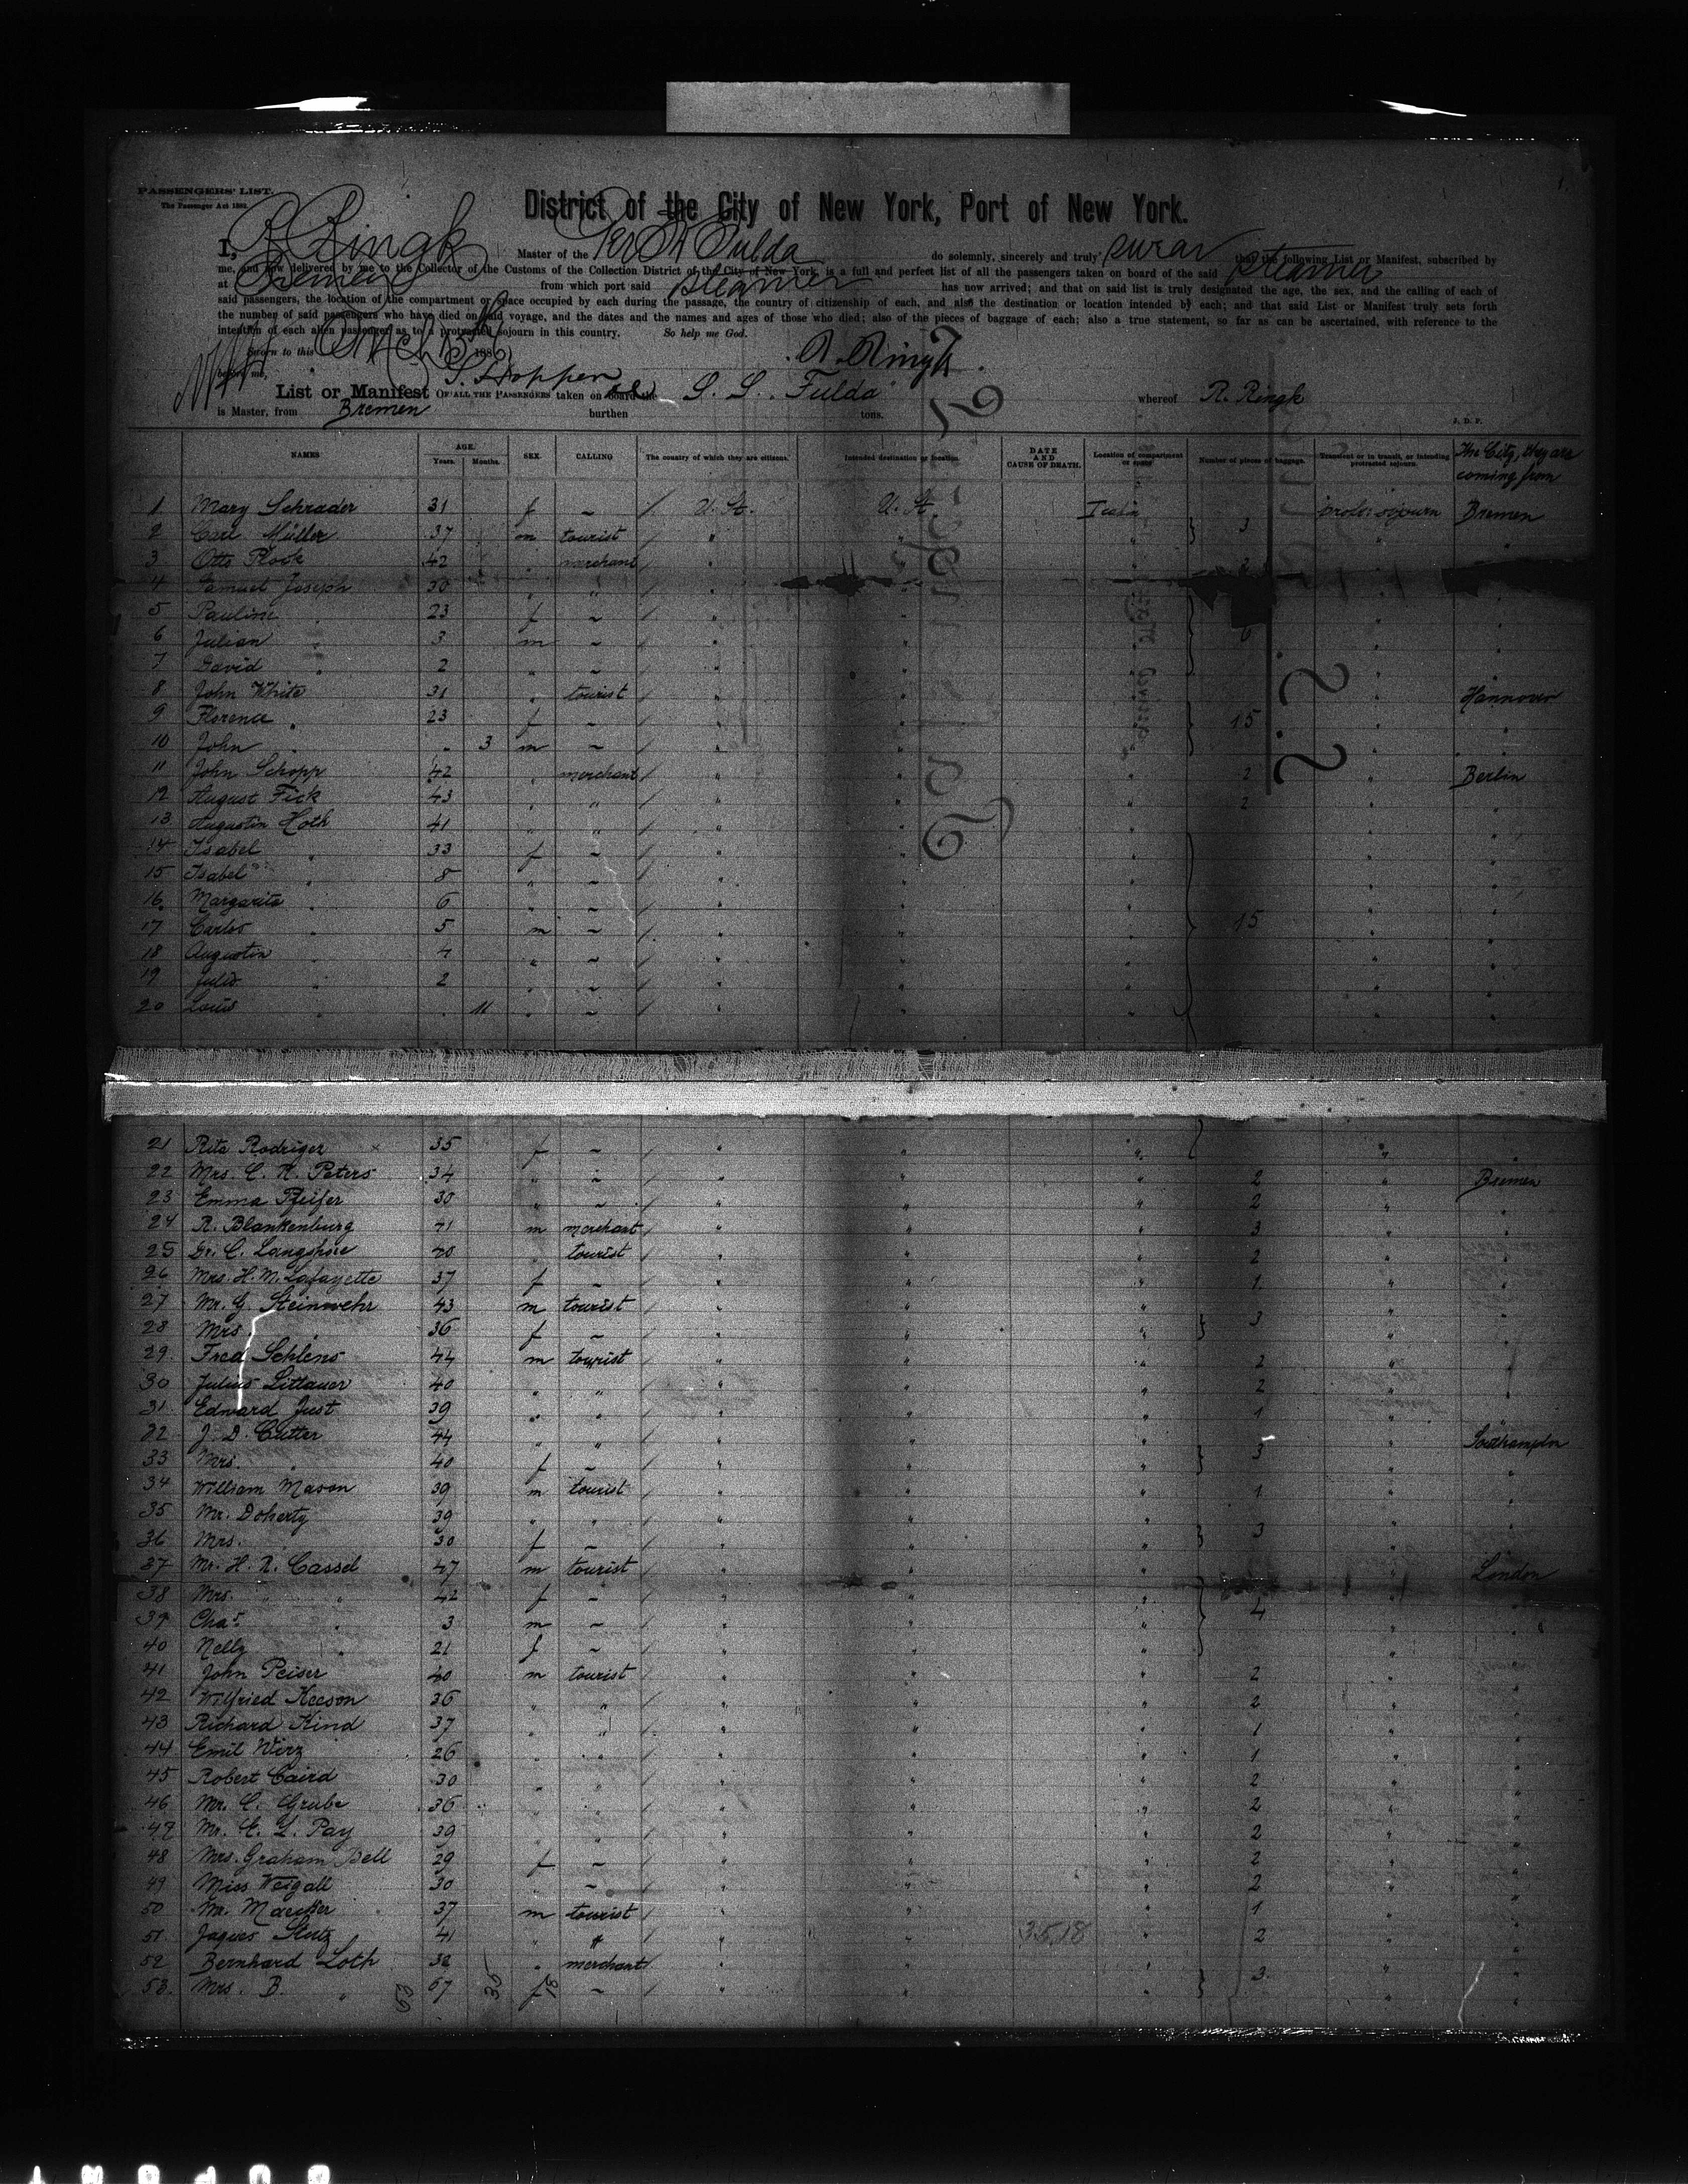 PASSENGERS' LIST.
The Passenger Act 1882.
1.
District of the City of New York, Port of New York.
I, R. Ringk Master of the Ger St Fulda do solemnly, sincerely and truly swear that the following List or Manifest, subscribed by
me, and now delivered by me to the Collector of the Customs of the Collection District of the City of New York, is a full and perfect list of all the passengers taken on board of the said steamer
at Bremen from which port said steamer has now arrived; and that on said list is truly designated the age, the sex, and the calling of each of
said passengers, the location of the compartment or space occupied by each during the passage, the country of citizenship of each, and also the destination or location intended by each; and that said List or Manifest truly sets forth
the number of said passengers who have died on said voyage, and the dates and the names and ages of those who died; also of the pieces of baggage of each; also a true statement, so far as can be ascertained, with reference to the
intention of each alien passenger as to a protracted sojourn in this country. So help me God.
Sworn to this March 188
before me, R. Ringk
List or Manifest OF ALL THE PASSENGERS taken on board the S. S. Fulda whereof R. Ringk
is Master, from Bremen burthen tons.
J. D. P.
NAMES AGE. Years. Months. SEX. CALLING The country of which they are citizens. Intended destination or location. DATE AND CAUSE OF DEATH. Location of compartment or space Number of pieces of baggage. Transient or in transit, or intending protracted sojourn. The City, they are coming from
1 Mary Schrader 31 f ~ / U. St. U. St. protr. sojourn Bremen
2 Carl Müller 37 m tourist / " " " } 3 " "
3 Otto Plock 42 " merchant / " " " 2 "
4 Samuel Joseph 30 " " / " " "
5 Pauline " 23 f ~ / " " " " "
6 Julian " 3 m ~ / " " " 6 " "
7 David " 2 " ~ / " " " " "
8 John White 31 " tourist / " " " " Hannover
9 Florence " 23 f ~ / " " " } 15 " "
10 John " " 3 m ~ / " " " " "
11 John Schopp 42 " merchant / " " " 2 " Berlin
12 August Fick 43 " " / " " " 2 " "
13 Augustin Hoth 41 " " / " " " " "
14 Isabel " 33 f ~ / " " " " "
15 Isabel " 8 " ~ / " " " " "
16 Margarita " 6 " ~ / " " " " "
17 Carlos " 5 m ~ / " " " 15 " "
18 Augustin " 4 " ~ / " " " " "
19 Julio " 2 " ~ / " " " " "
20 Louis " " 11 " ~ / " " " " "
21 Rita Rodriger 35 f ~ / " " " " "
22 Mrs. C. N. Peters 34 " ~ / " " " 2 " Bremen
23 Emma Pfeifer 30 " ~ / " " " 2 " "
24 R. Blankenburg 41 m merchant / " " " 3 " "
25 Dr. C. 40 tourist / " " " 2 " "
26 Mrs. H. M. Lafayette 37 f ~ / " " " 1 " "
27 Mr. G. Steinwehr 43 m tourist / " " " } 3 " "
28 Mrs. " 36 f ~ / " " " " "
29. Fred Schlens 44 m tourist / " " " 2 " "
30 Julius Littauer 40 " " / " " " 2 " "
31. Edward Just 39 " " / " " " 1 " "
32 J. D. Cutter 44 " " / " " " } 3 " Southampton
33 Mrs. " 40 f ~ / " " " " "
34 William Mason 39 m tourist / " " " 1 " "
35 Mr. Doherty 39 " " / " " " } 3 " "
36 Mrs. " 30 f ~ / " " " " "
37 Mr. H. N. Cassel 47 m tourist / " " " " London
38 Mrs. " " 42 f ~ / " " " } 4 " "
39 Chas. " 3 m ~ / " " " " "
40 Nelly " 21 f ~ / " " " " "
41 John Peiser 40 m tourist / " " " 2 " "
42 Wilfried Keeson 36 " " / " " " 2 " "
43 Richard Kind 37 " " / " " " 1 " "
44 Emil Wirz 26 " " / " " " 1 " "
45 Robert Caird 30 " " / " " " 2 " "
46 Mr. C. Grube 36 " " / " " " 2 " "
47 Mr. E. L. Pay 39 " " / " " " 2 " "
48 Mrs. Graham Bell 29 f ~ / " " " 2 " "
49 Miss Weigall 30 " ~ / " " " 2 " "
50 Mr. 37 m tourist / " " " 1 " "
51 Jaques 41 " " / " " 3518 " 2 " "
52 Bernhard Loth 32 " merchant / " " " } 3 " "
53. Mrs. B. " 67 f ~ / " " " " "